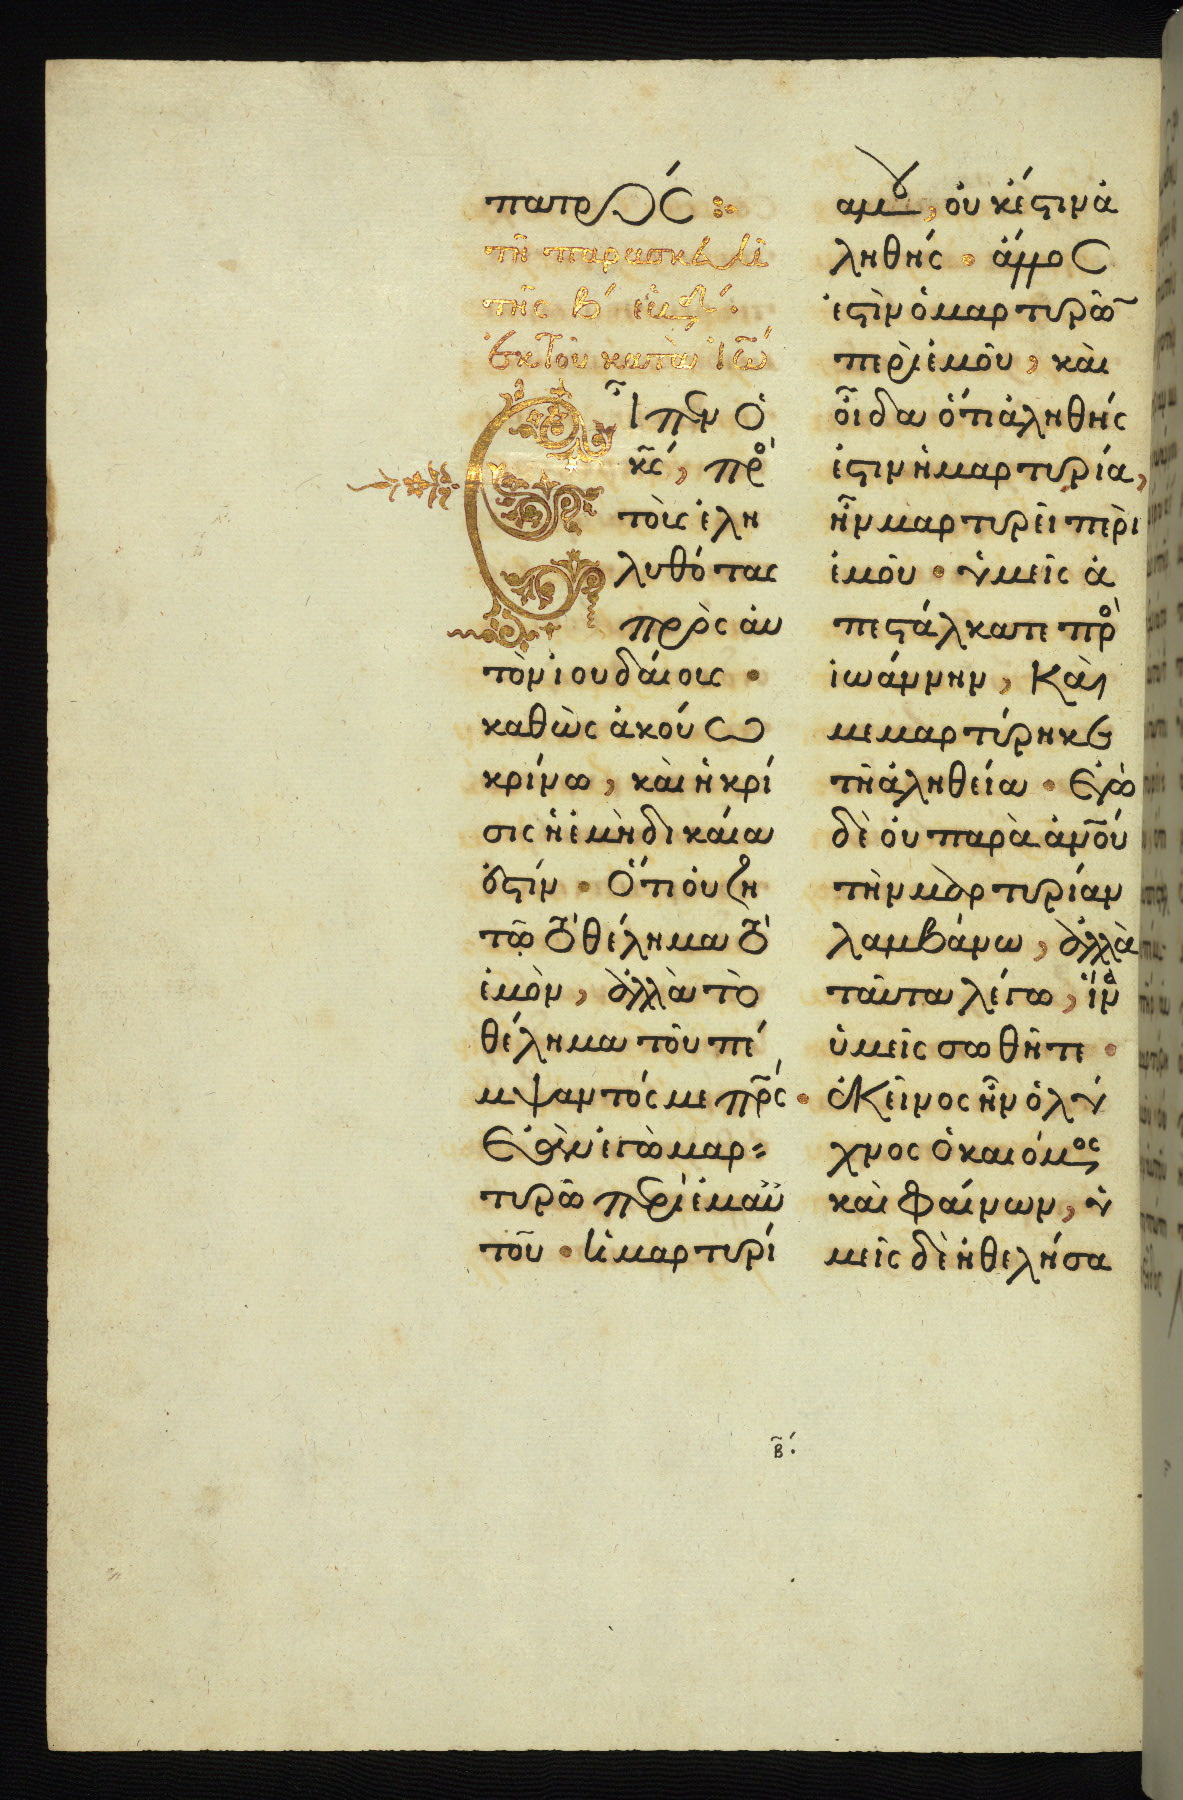 πατρός :·
τῇ παρασκευῇ
τῆς β´ ἑβδ´.
ἐκ τοῦ κατὰ ἰω
Εἶπεν ὁ
κς, πρὸ
τοὺς ἐλη
λυθότας
πρὸς αὐ
τὸν ἰουδαίους ·
καθὼς ἀκούω
κρίνω, καὶ ἡ κρί
σις ἡ ἐμὴ δικαία
ἐστίν · Ὅτι οὐ ζη
τῶ τὸ θέλημα τὸ
ἐμὸν, ἀλλὰ τὸ
θέλημα τοῦ πέ
μψαντός με πρς ·
Ἐὰν ἐγὼ μαρ=
τυρῶ περὶ ἐμαυ
τοῦ · ἡ μαρτυρί
α μου, οὐκ έστιν ἀ
ληθής · ἄλλος
ἐστὶν ὁ μαρτυρῶ
περὶ ἐμοῦ, καὶ
οἶδα ὅτι ἀληθής
ἐστιν ἡ μαρτυρία,
ἣν μαρτυρεῖ περὶ
ἐμοῦ · ὑμεῖς ἀ
πεστάλκατε πρὸ
ἰωάννην, Καὶ
μεμαρτύρηκε
τῇ ἀληθεία · Ἐγὼ
δὲ οὐ παρὰ ἀνου
τὴν μαρτυρίαν
λαμβάνω, ἀλλὰ
ταῦτα λέγω, ἵνα
ὑμεῖς σωθῆτε ·
ἐκεῖνος ἦν ὁ λύ
χνος ὁ καιόμενος
καὶ φαίνων, ὑ
μεῖς δὲ ἠθελήσα
β·